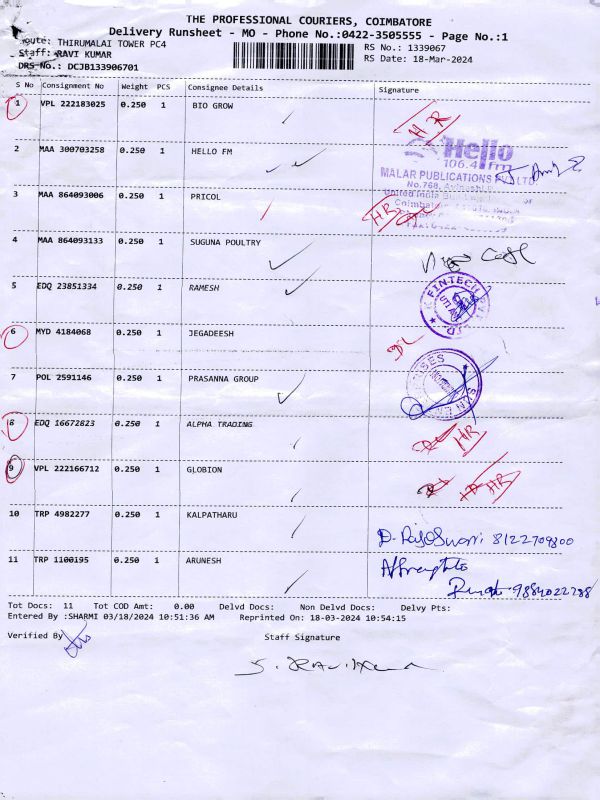 THE PROFESSIONAL COURIERS, COIMBATORE
Delivery Runsheet - MO - Phone No.:0422-3505555 - Page No.:1
Route: THIRUMALAI TOWER PC4
RS No.: 1339067
Staff: RAVI KUMAR
RS Date: 18-Mar-2024
DRS No.: DCJB133906701
S No Consignment No Weight PCS Consignee Details Signature
1 VPL 222183025 0.250 1 BIO GROW HR
2 MAA 300703258 0.250 1 HELLO FM
Hello
106.4 fm
MALAR PUBLICATIONS PVT LTD.
No.768,
3 MAA 864093006 0.250 1 PRICOL HR
4 MAA 864093133 0.250 1 SUGUNA POULTRY
5 EDQ 23851334 0.250 1 RAMESH
FINTECH
6 MYD 4184068 0.250 1 JEGADEESH DL
7 POL 2591146 0.250 1 PRASANNA GROUP
8 EDQ 16672823 0.250 1 ALPHA TRADING HR
9 VPL 222166712 0.250 1 GLOBION HR HR
10 TRP 4982277 0.250 1 KALPATHARU D. Rajeswari 8122709800
11 TRP 1100195 0.250 1 ARUNESH
9884022288
Tot Docs: 11 Tot COD Amt: 0.00 Delvd Docs: Non Delvd Docs: Delvy Pts:
Entered By :SHARMI 03/18/2024 10:51:36 AM Reprinted On: 18-03-2024 10:54:15
Verified By Staff Signature
S. RAVIKUMAR